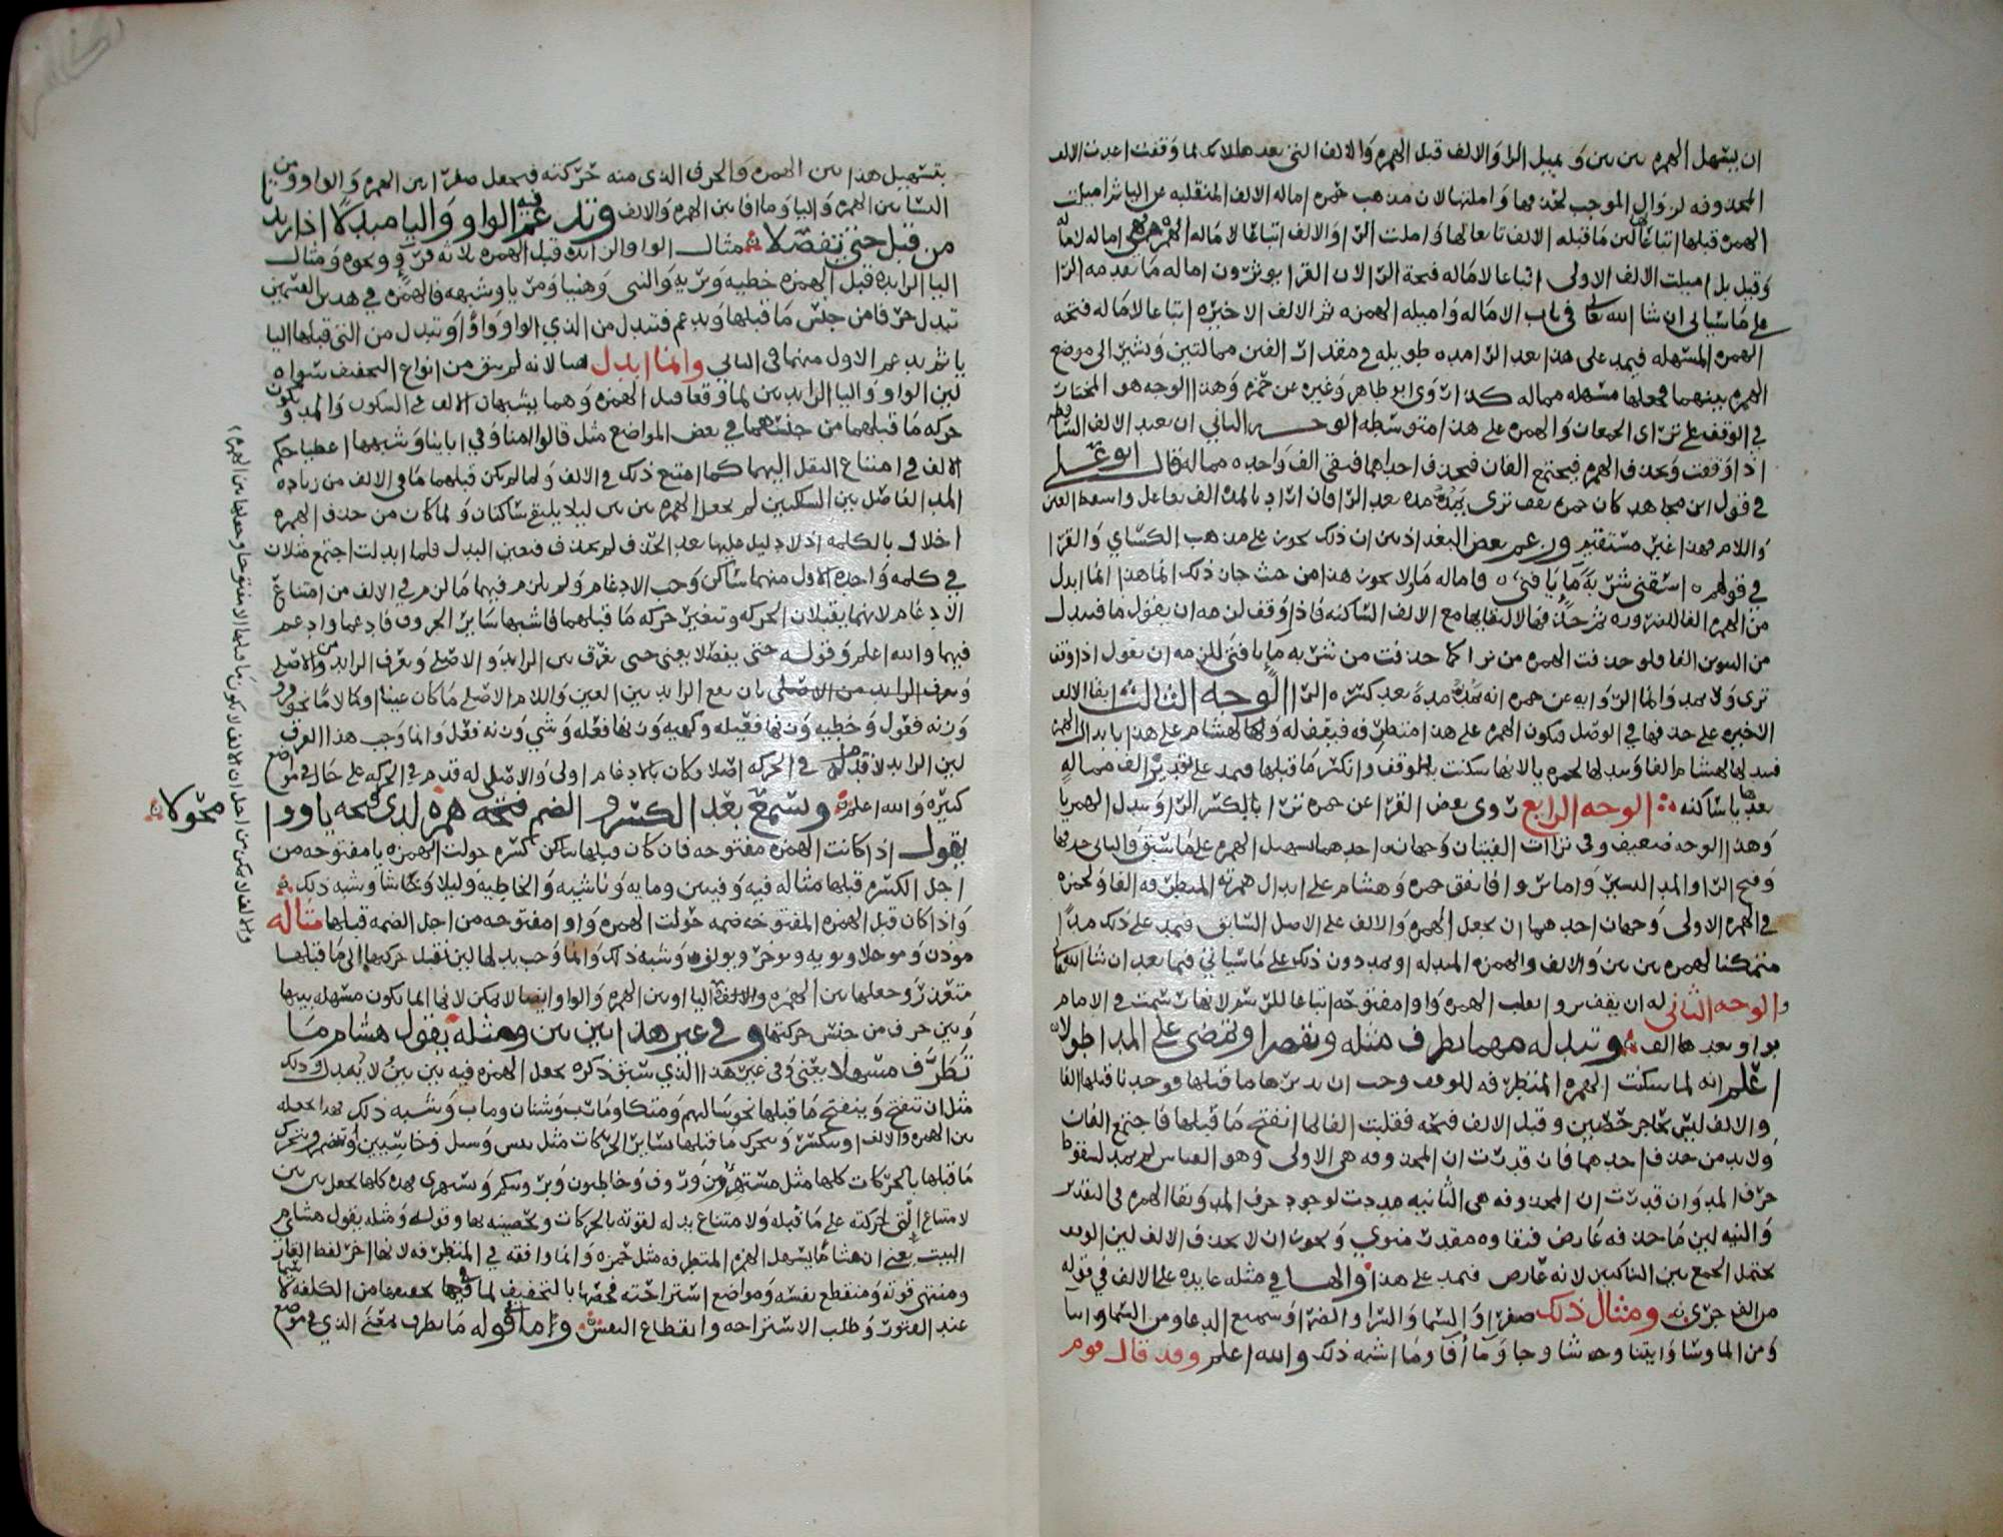 ان يسهل الهمزه بين بين وَيميل الرا وَالالف قبل الهمزه وَالالف التي بعدها لانه لما وَقفت اعيدت الالف
المحذوفه لزوال الموجب لحذفها وَاملتها لان مذهب حمزه اماله الالف المنقلبه عن اليا ثم اميلت
الهمزه قبلها اتباعًا لان مَا قبله الالف تابعا لها وَاملت الرا وَالالف اتباعًا لامَاله الهمزه فهي اماله لاماله
وَقيل بل اميلت الالف الاولى اتباعا لامَاله فتحة الرا لان القرا يوثرون اماله مَا بعدمه الرا
على مَا سياتي ان شا الله تعالى في باب الامَاله وَاميله الهمزه ثم الالف الاخيره اتباعا لامَاله فتحه
الهمزه المسهله فيمد على هذا بعد الرا مده طويله في مقدار الفين ممالتين وَيشير الى موضع
الهمزه بينهما فيجعلها مسهله مماله كذا روَى ابو طاهر وَغيره عن حمزه وَهذا الوجه هو المختار
في الوقف على تراى الجمعان وَالهمزه على هذا متوسطه الوجه الثاني ان يعيد الالف الساقطه
اذا وَقفت وَيحذف الهمزه فيجتمع الفان فيحذف احداهما فيبقى الف وَاحده مماله قال ابو علي
في قول ابن مجاهد كان حمزه يقف ترى يمد مده بعد الرا فان اراد بالمده الف تفاعل واسقط العين
وَاللام فهذا غير مستقيم وزعم بعض البغداذيين ان ذلك يجوز على مذهب الكسَاي وَالفرا
في قولهم ه اسقني شربة مَا يَا فتى ه وَاماله مَا ولا يجوز هذا من حيث جاز ذلك لان هذا انما ابدل
من الهمزه الفا للضروره ثم حذفها لالتقايها مع الالف السَاكنه فاذا وَقف لزمه ان يقول مَا فيبدل
من التنوين الفا فلو حذفت الهمزه من تراا كما حذفت من شربه مَا يا فتى للزمه ان يقول اذا وقف
ترى وَلا يمد وَانما الروَايه عن حمزه انه يمد مدةً بعد كسره الرا الوجه الثالث ابقا الالف
الاخيره على حذفها في الوصل فتكون الهمزه على هذا متطرفه فيقف له وَلهشام على هذا بابدال الهمزه
فيبدلها لهشام الفا وَيبدلها لحمزه يا لانها سكنت بالوقف وانكسر مَا قبلها فيمد على تقدير الف مماله
بعدها يا ساكنه الوجه الرابع روى بعض القرا عن حمزه ترا بالكسر الرا وَيبدل الهمزه يا
وَهذا الوجه ضعيف وفي تراات الفيتان وَجهان احدهما تسهيل الهمزه على مَا سبق وَالثاني حذفها
وَفتح الرا والمد اليسير وَاما رءوا فاتفق حمزه وَهشام على ابدال همزته المتطرفه الفا وَلحمزه
في الهمزه الاولى وَجهان احدهما ان يجعل الهمزه وَالالف على الاصل السَابق فيمد على ذلك مدًا
متمكنا لهمزه بين بين وَالالف والهمزه المبدله او يمد دون ذلك على مَا سياتي فيما بعد ان شا الله تعالى
والوجه الثاني له ان يقف بروا بقلب الهمزه وَاوا مفتوحه اتباعا للرسم لانها رسمت في الامام
بواو بعدها الف وتبدله مهما تطرف مثله ويقصر او يمضي على المد اطولا
اعلم انه لما سكنت الهمزه المتطرفه للوقف وجب ان يدبرها ما قبلها فوجدنا قبلها الفا
والالف ليس بحاجز حصين وقبل الالف فتحه فقلبت الفا لما انفتح مَا قبلها فاجتمع الفان
وَلابد من حذف احدهما فان قدرت ان المحذوفه هي الاولى وهو القياس لم يمد لسقوط
حرف المد وَان قدرت ان المحذوفه هي الثانيه مددت لوجود حرف المد وَبقا الهمزه في التقدير
وَالنيه لان مَا حذفه عَارض فبقاوه مقدر منوي وَيجوز ان لا يحذف الالف لان الوقف
يحتمل الجمع بين الساكنين لانه عَارض فيمد على هذا والها في مثله عَايده على الالف في قوله
من الف جرى ومثال ذلك صفرا وَالسمَا وَالسرا والضرا وَسميع الدعا ومن السما واساَ
وَمن الما وشا وَابتنا وجا شا وجا وَمَا اُفا ومَا اشبه ذلك والله اعلم وقد قال قوم
بتسهيل هذا بين الهمزه وَالحرف الذي منه حركته فيجعل صفرا بين الهمزه وَالواو ومن
السَما بين الهمزه وَاليا وَما افا بين الهمزه والالف ويدغم فيه الواو وَاليا مبدلًا اذا زيدتا
من قبل حتى يفصّلا مثال الواو الزايده قبل الهمزه ثلاثه قروٍ ونحوه وَمثال
اليا الزايده قبل الهمزه خطيه وَبريه وَالنسي وَهنيا وَمريا وشبهه فالهمزه في هذين القسمين
تبدل حرفا من جنس مَا قبلها وَيدغم فتبدل من الذي الواو وَاوًا وَتبدل من التي قبلها اليا
يا ثم يدغم الاول منهما في الثاني وانما ابدل هنا لانه لم يبق من انواع التخفيف سواه
لان الواو وَاليا الزايدين لما وَقعا قبل الهمزه وَهما يشبهان الالف في السكون وَالمد وَكون
حركه مَا قبلهما من جنسهما في بعض المواضع مثل قالوا امنا وَفي ايابنا وَشبهها اعطيا حكم
الالف في امتناع النقل اليهما كما امتنع ذلك في الالف وَلما لم يكن قبلهما مَا في الالف من زياده
المد الفاصل بين السكنين لم يجعل الهمزه بين بين ليلا يلتقي سَاكنان وَلما كان من حذف الهمزه
اخلال بالكلمه اذ لا دليل عليها بعد الحذف لم يحذف فتعين البدل فلما ابدلت اجتمع مثلان
في كلمه وَاحده الاول منهما سَاكن وَجب الادغام وَلم يلزم فيهما مَا لزم في الالف من امتناع
الادغام لانهما يقبلان الحركه وتتغير حركه مَا قبلهما فاشبها سَاير الحروف فادغما وادغم
فيهما والله اعلم وَقوله حتى يفصّلا يعني حتى يفرق بين الزايد وَالاصلي وَيعرف الزايد من الاصلي
وَيعرف الزايد من الاصلي بان يقع الزايد بين العين وَاللام الاصلي مَا كان عينا او لامًا نحو قروٍ
وَزنه فعول وَخطيه وَزنها فعيله وكهيه وَزنها فعله وَشي وَزنه فعل وَانما وَجب هذا الفرق
لان الزايد لا قدم له في الحركه اصلا وكان بالادغام اولى وَالاصلي له قدم في الحركه على حَال في مواضع
كثيره وَالله اعلم ويسمع بعد الكسر والضم همزه لدى فتحه يا وواوا محوّلا
يقول اذا كانت الهمزه مفتوحه فان كان قبلها سَاكن كسره حولت الهمزه يا مفتوحه من
اجل الكسره قبلها مثاله فيه وَفيين ومايه وَناشيه وَالخاطيه وَليلا وَ شانيك وشبه ذلك
وَاذا كان قبل الهمزه المفتوحه ضمه حولت الهمزه وَاوا مفتوحه من اجل الضمه قبلها مثاله
موذن وَموجلا ويويه ويوخر ويولف وَشبه ذلك وَانما وَجب بدلها لان نقل حركتها الى مَا قبلها
متعذر وجعلها بين الهمزه والالف اليا او بين الهمزه وَالواو ايضا لا يمكن لانها انما تكون مسهله بينها
وَبين حرف من جنس حركتها وفي غير هذا بين بين ومثله يقول هشام مَا
تَطَرَّف مسهلا يعني وَفي غير هذا الذي سبق ذكره يجعل الهمزه فيه بين بين لا يبدل وذلك
مثل ان تنفتح وَينفتح مَا قبلها نحو سَالهم وَمتكا وَمَارب وَشنان وماب وَشبه ذلك فهذا يجعله
بين الهمزه والالف او ينكسر وَيتحرك مَا قبلها بسَاير الحركات مثل يئس وَسيل وَخاسيين اَو تنضم ويتحرك
مَا قبلها بالحركات كلها مثل مستهزون وَروف وَخاطيون وَبروسكم وَسنقري فهذه كلها يجعل بين بين
لامتناع القى حركته على مَا قبله وَلامتناع بدله لقوته بالحركات وتحصينه بها وقوله وَمثله يقول هشام
البيت يعني ان هشامًا يسهل الهمزه المتطرفه مثل حمزه وَانما وافقه في المتطرفه لانها اخر لفظ القاري
ومنتهى قوته وَمنقطع نفسه وَمواضع استراحته فخصها بالتخفيف لما فيها تخفيفا من الكلفه لا سيما
عند الفتور وَطلب الاستراحه وانقطاع النفس وَاما قوله مَا تطرف فمعنى الذي في موضع